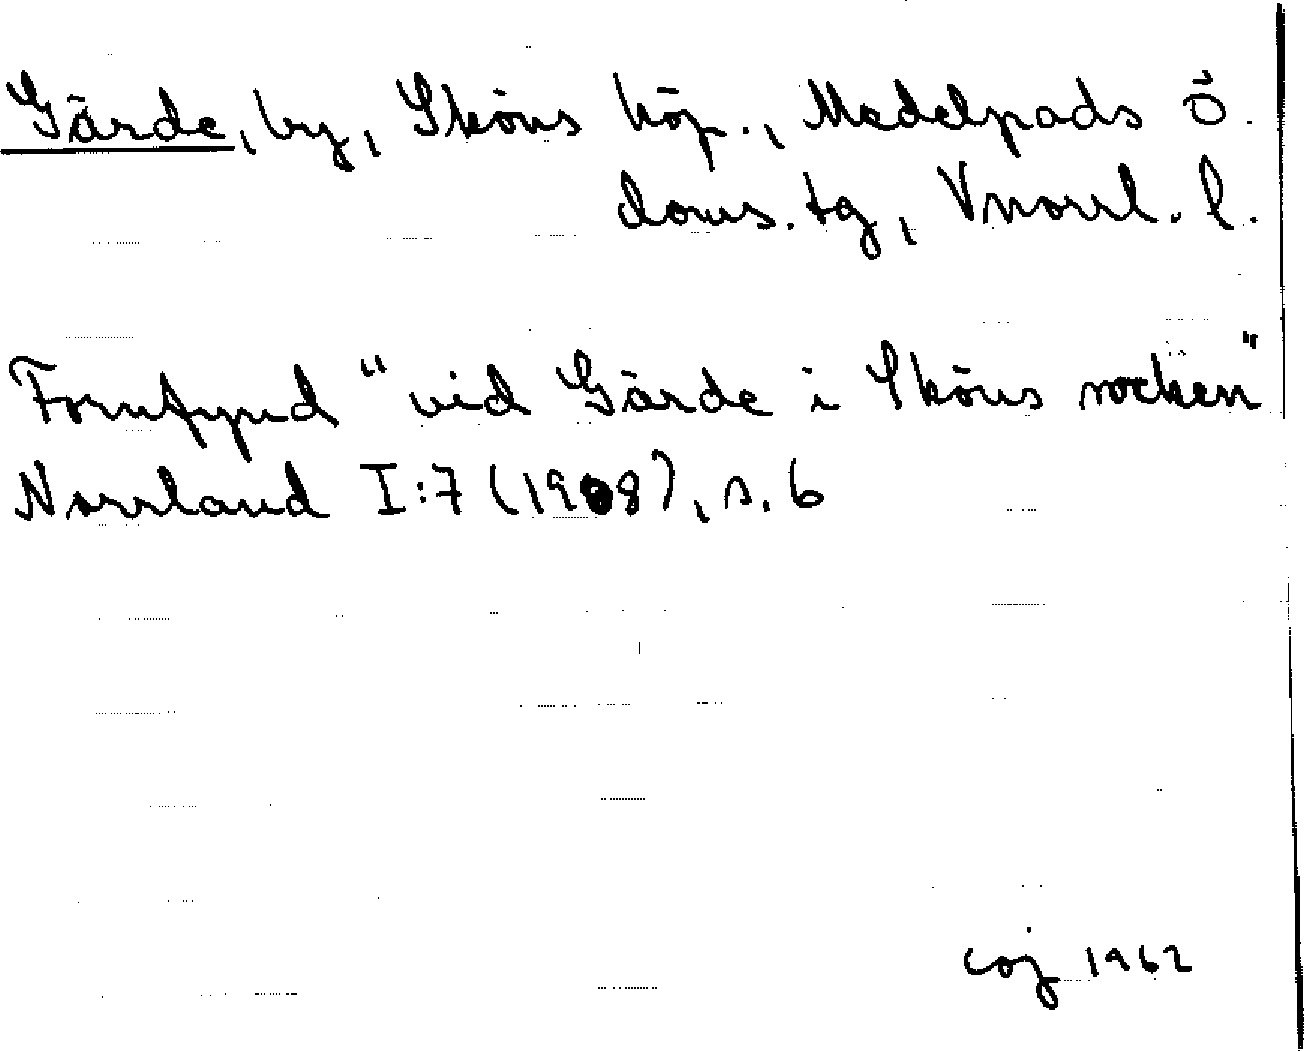 Gärde, by, Sköns köp., Medelpads ö.
doms. tg, Vnorrl. l.
Fornfynd "vid Gärde i Sköns socken"
Norrland I:7 (1908), s. 6
coj 1962